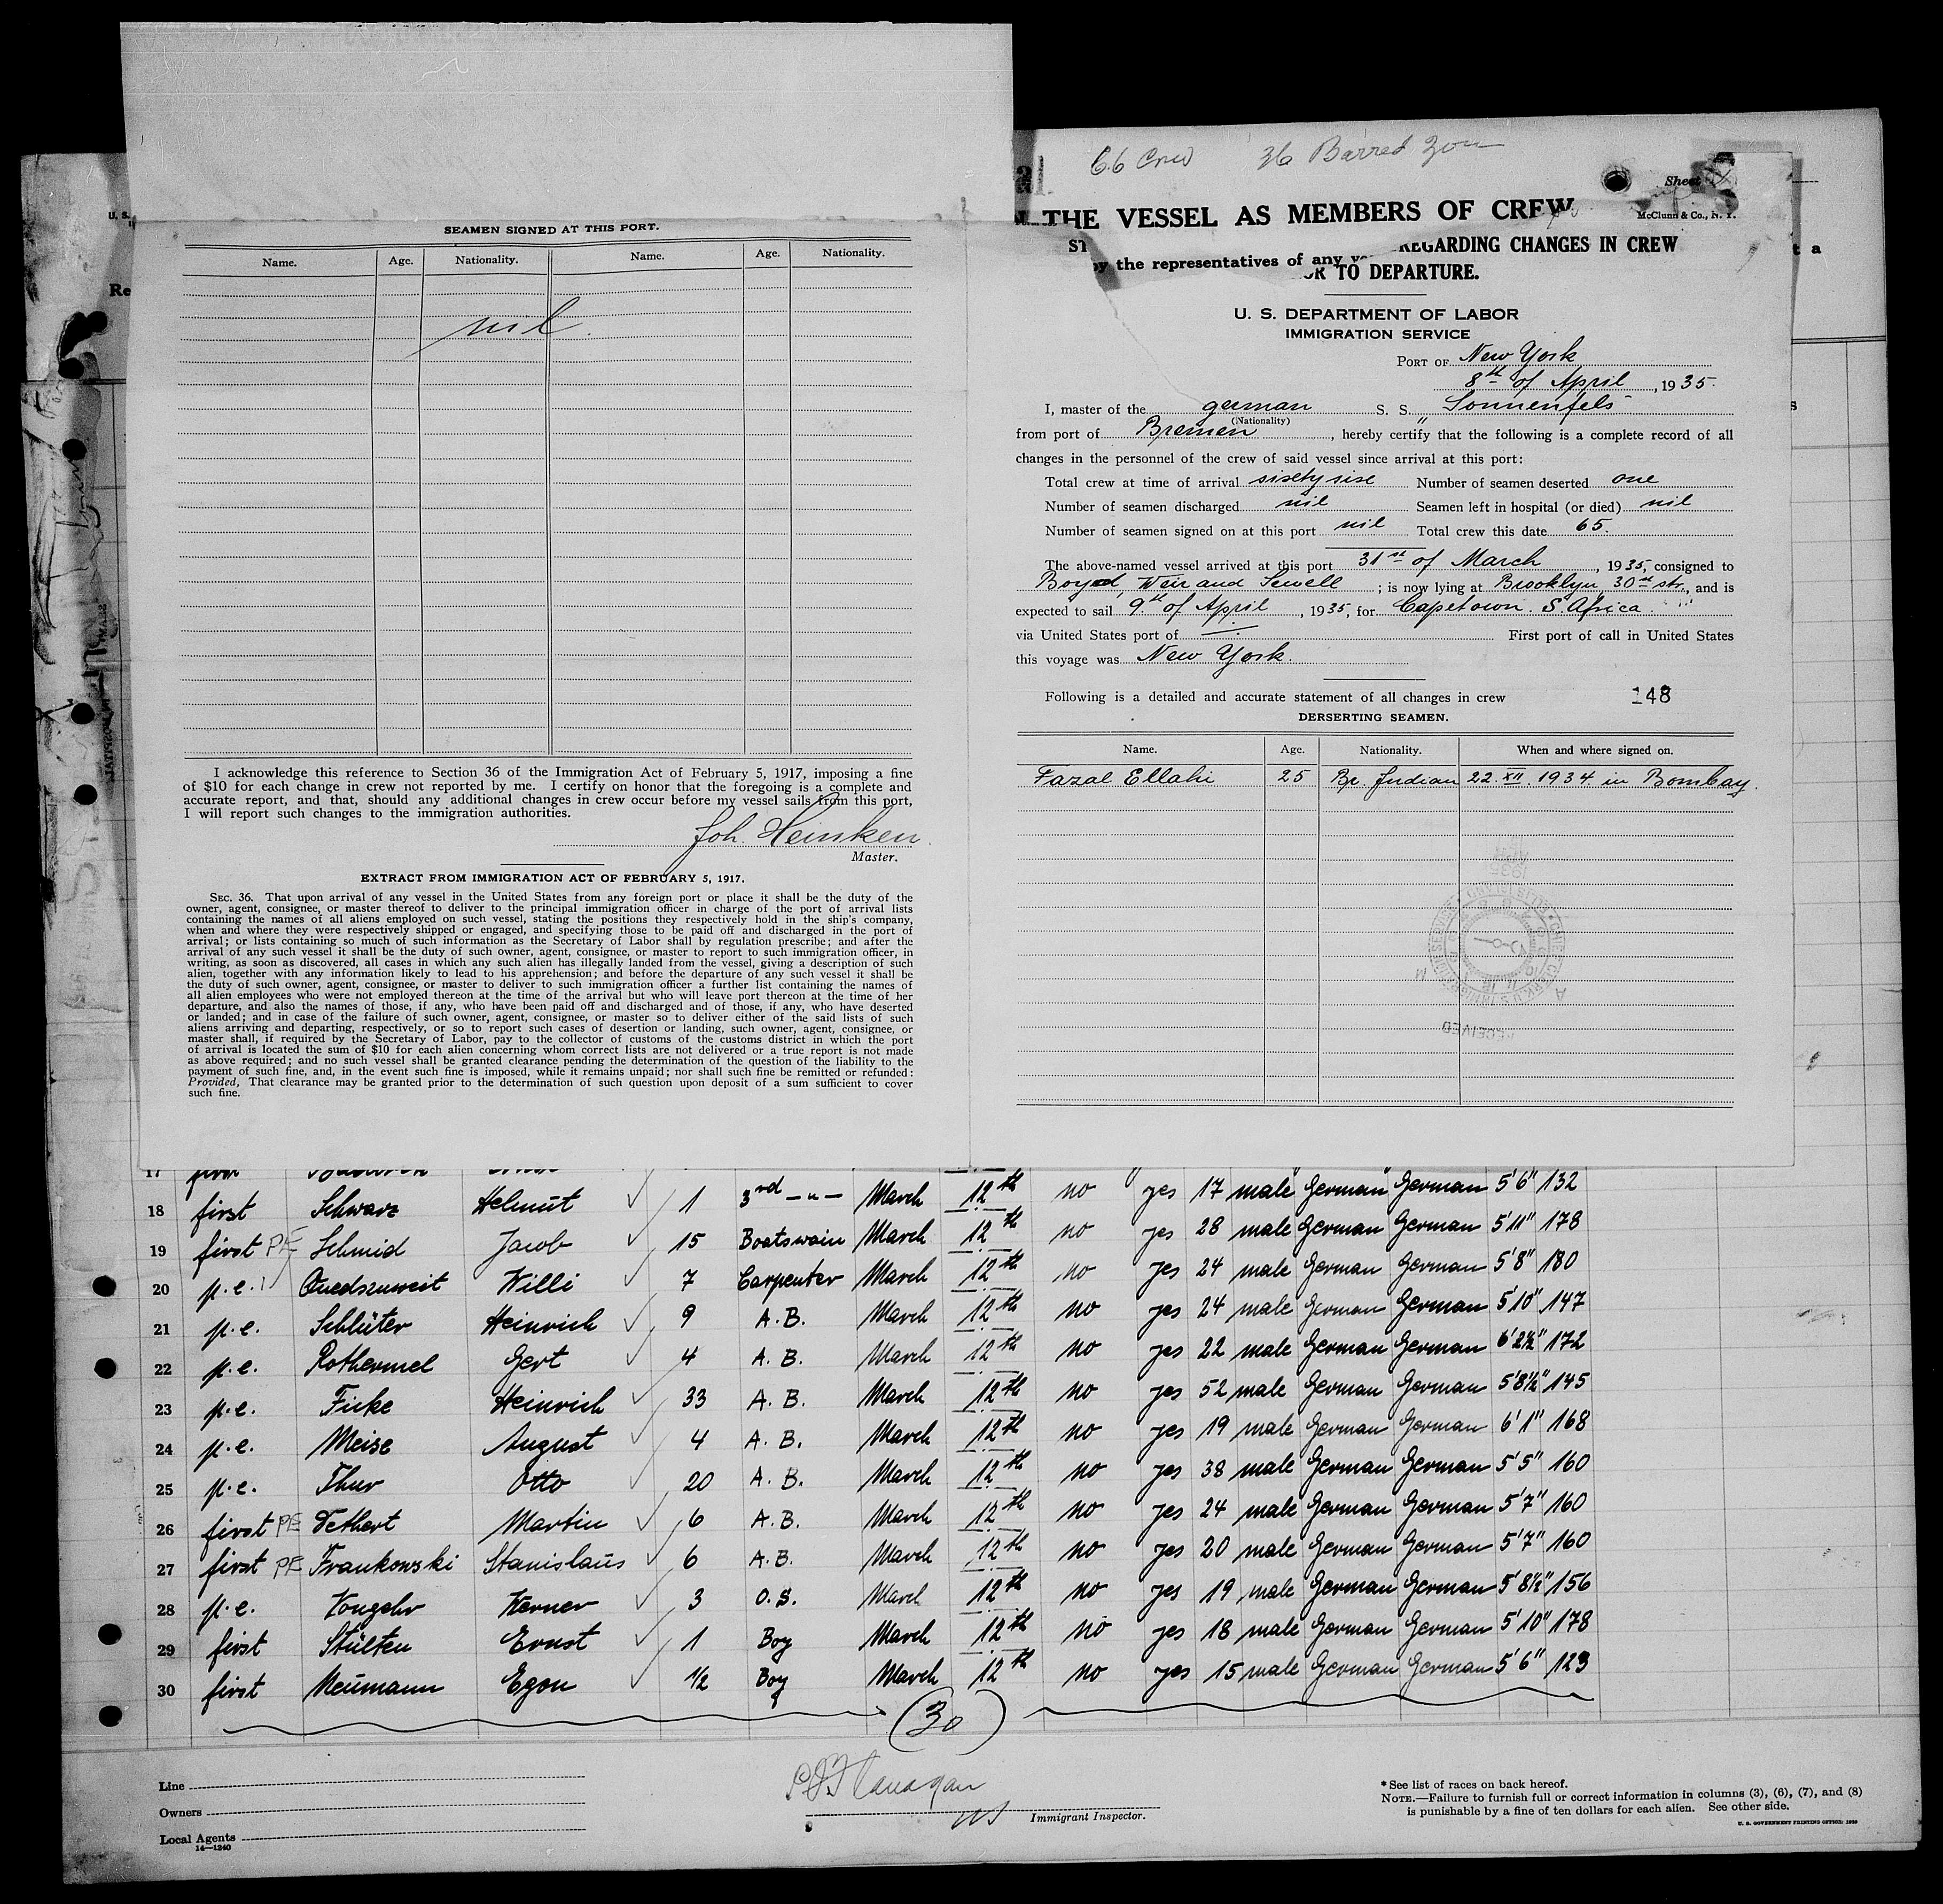 66 Crew 36 Barred Zone
Sheet
McClunn & Co., N. Y.
THE VESSEL AS MEMBERS OF CREW
REGARDING CHANGES IN CREW
by the representatives of any
TO DEPARTURE.
U. S. DEPARTMENT OF LABOR
IMMIGRATION SERVICE
PORT OF New York
8th of April, 1935.
I, master of the german S. S. "Sonnenfels"
(Nationality)
from port of Bremen, hereby certify that the following is a complete record of all
changes in the personnel of the crew of said vessel since arrival at this port:
Total crew at time of arrival sixty six Number of seamen deserted one
Number of seamen discharged nil Seamen left in hospital (or died) nil
Number of seamen signed on at this port nil Total crew this date 65.
The above-named vessel arrived at this port 31st of March, 1935, consigned to
Boyed, Weir and Sewell; is now lying at Brooklyn, 30th str., and is
expected to sail 9th of April, 1935, for Capetown. S. Africa
via United States port of First port of call in United States
this voyage was New York.
Following is a detailed and accurate statement of all changes in crew 148
DERSERTING SEAMEN.
Name. Age. Nationality. When and where signed on.
Fazal Ellahi 25 Br. Indian 22. XII. 1934 in Bombay.
RECEIVED
SEAMEN SIGNED AT THIS PORT.
Name. Age. Nationality. Name. Age. Nationality.
nil
I acknowledge this reference to Section 36 of the Immigration Act of February 5, 1917, imposing a fine
of $10 for each change in crew not reported by me. I certify on honor that the foregoing is a complete and
accurate report, and that, should any additional changes in crew occur before my vessel sails from this port,
I will report such changes to the immigration authorities.
Joh. Heinken
Master.
EXTRACT FROM IMMIGRATION ACT OF FEBRUARY 5, 1917.
SEC. 36. That upon arrival of any vessel in the United States from any foreign port or place it shall be the duty of the
owner, agent, consignee, or master thereof to deliver to the principal immigration officer in charge of the port of arrival lists
containing the names of all aliens employed on such vessel, stating the positions they respectively hold in the ship's company,
when and where they were respectively shipped or engaged, and specifying those to be paid off and discharged in the port of
arrival; or lists containing so much of such information as the Secretary of Labor shall by regulation prescribe; and after the
arrival of any such vessel it shall be the duty of such owner, agent, consignee, or master to report to such immigration officer, in
writing, as soon as discovered, all cases in which any such alien has illegally landed from the vessel, giving a description of such
alien, together with any information likely to lead to his apprehension; and before the departure of any such vessel it shall be
the duty of such owner, agent, consignee, or master to deliver to such immigration officer a further list containing the names of
all alien employees who were not employed thereon at the time of the arrival but who will leave port thereon at the time of her
departure, and also the names of those, if any, who have been paid off and discharged and of those, if any, who have deserted
or landed; and in case of the failure of such owner, agent, consignee, or master so to deliver either of the said lists of such
aliens arriving and departing, respectively, or so to report such cases of desertion or landing, such owner, agent, consignee, or
master shall, if required by the Secretary of Labor, pay to the collector of customs of the customs district in which the port
of arrival is located the sum of $10 for each alien concerning whom correct lists are not delivered or a true report is not made
as above required; and no such vessel shall be granted clearance pending the determination of the question of the liability to the
payment of such fine, and, in the event such fine is imposed, while it remains unpaid; nor shall such fine be remitted or refunded:
Provided, That clearance may be granted prior to the determination of such question upon deposit of a sum sufficient to cover
such fine.
18 first Schwarz Helmut 1 3rd -"- March 12th no yes 17 male German German 5'6" 132
19 first PE Schmid Jacob 15 Boatswain March 12th no yes 28 male German German 5'11" 178
20 p.e. Quedszuweit Willi 7 Carpenter March 12th no yes 24 male German German 5'8" 180
21 p.e. Schlüter Heinrich 9 A.B. March 12th no yes 24 male German German 5'10" 147
22 p.e. Rothermel Gert 4 A.B. March 12th no yes 22 male German German 6'2½" 172
23 p.e. Ficke Heinrich 33 A.B. March 12th no yes 52 male German German 5'8½" 145
24 p.e. Meise August 4 A.B. March 12th no yes 19 male German German 6'1" 168
25 p.e. Thur Otto 20 A.B. March 12th no yes 38 male German German 5'5" 160
26 first PE Tethert Martin 6 A.B. March 12th no yes 24 male German German 5'7" 160
27 first PE Frankowski Stanislaus 6 A.B. March 12th no yes 20 male German German 5'7" 160
28 p.e. Vongehr Werner 3 O.S. March 12th no yes 19 male German German 5'8½" 156
29 first Stülten Ernst 1 Boy March 12th no yes 18 male German German 5'10" 178
30 first Neumann Egon ½ Boy March 12th no yes 15 male German German 5'6" 123
(30)
Line
Owners
Local Agents
14—1240
P J Flanagan
Immigrant Inspector.
*See list of races on back hereof.
NOTE.—Failure to furnish full or correct information in columns (3), (6), (7), and (8)
is punishable by a fine of ten dollars for each alien. See other side.
U. S. GOVERNMENT PRINTING OFFICE: 1929